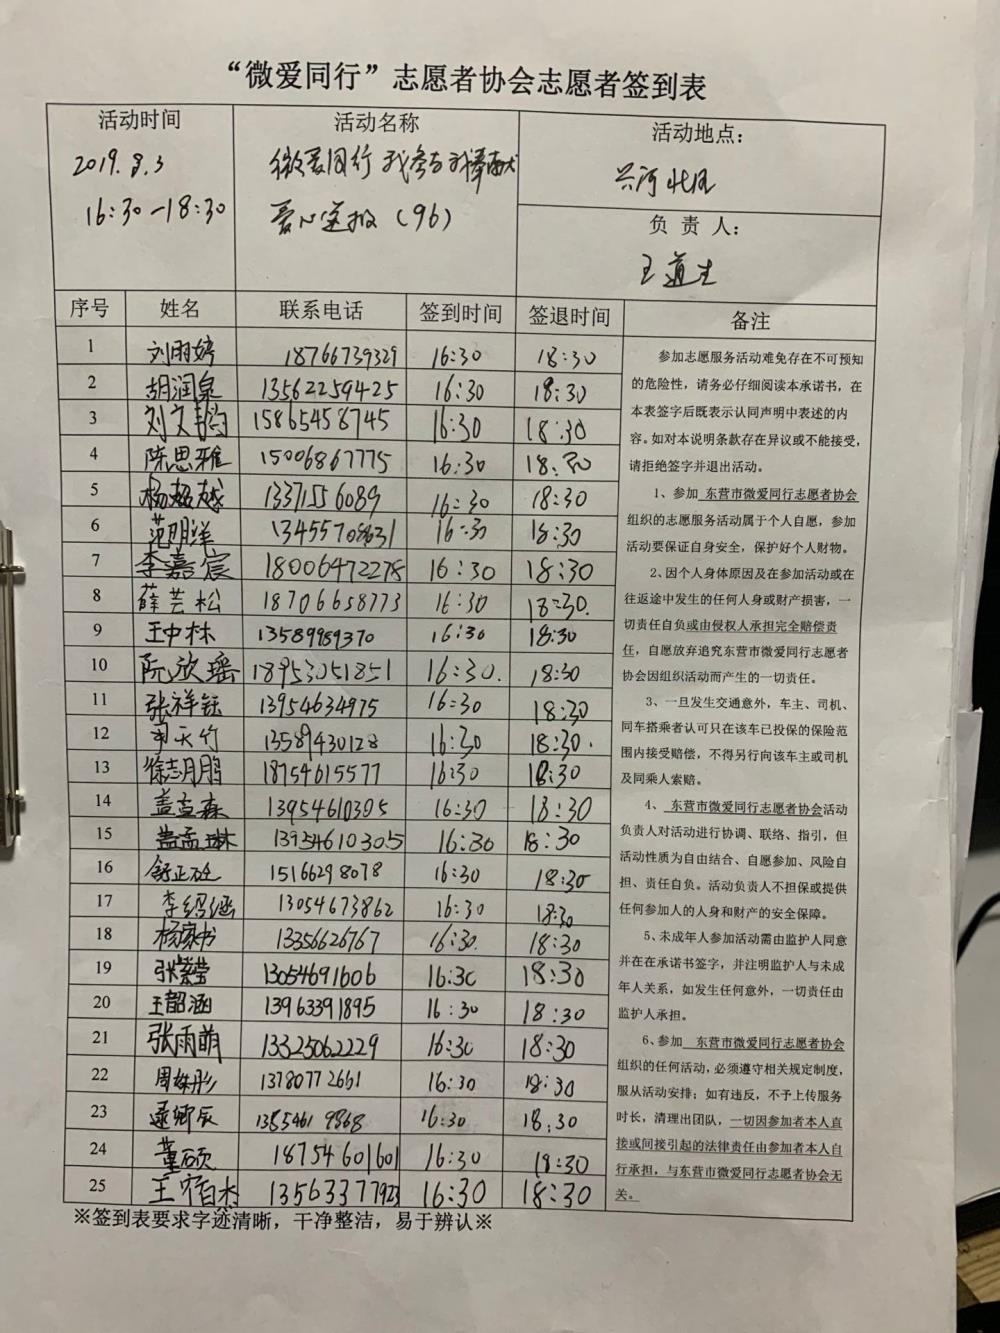 “微爱同行”志愿者协会志愿者签到表
活动时间 活动名称 活动地点：
2019.8.3 微爱同行 我参与我奉献
16:30-18:30 爱心送报（96） 兴河北风
负 责 人：
王道生
序号 姓名 联系电话 签到时间 签退时间 备注
1 刘雨婷 18766739329 16:30 18:30
2 胡润泉 13562259425 16:30 18:30
3 刘文韵 15865458745 16:30 18:30
4 陈思雅 15006867775 16:30 18:30
5 杨超越 13371556089 16:30 18:30
6 范明洋 13455708631 16:30 18:30
7 李嘉宸 18006472278 16:30 18:30
8 薛芸松 18706658773 16:30 18:30.
9 王中林 13589989370 16:30 18:30
10 阮欣瑶 18953051851 16:30. 18:30
11 张祥钰 13954634975 16:30 18:30
12 天竹 13589430128 16:30 18:30.
13 徐志鹏 18754615577 16:30 18:30
14 盖孟森 13954610305 16:30 18:30
15 盖孟琳 13954610305 16:30 18:30
16 舒正 15166298078 16:30 18:30
17 李绍涵 13054673862 16:30 18:30
18 杨家书 13356626767 16:30. 18:30
19 张紫莹 13054691606 16:30 18:30
20 王韶涵 13963391895 16:30 18:30
21 张雨萌 13325062229 16:30 18:30
22 周姝彤 13780772661 16:30 18:30
23 卿辰 13854619868 16:30 18:30
24 董硕 18754601601 16:30 18:30
25 王宿杰 13563377923 16:30 18:30
参加志愿服务活动难免存在不可预知
的危险性，请务必仔细阅读本承诺书，在
本表签字后既表示认同声明中表述的内
容。如对本说明条款存在异议或不能接受，
请拒绝签字并退出活动。
1、参加 东营市微爱同行志愿者协会
组织的志愿服务活动属于个人自愿，参加
活动要保证自身安全，保护好个人财物。
2、因个人身体原因及在参加活动或在
往返途中发生的任何人身或财产损害，一
切责任自负或由侵权人承担完全赔偿责
任，自愿放弃追究东营市微爱同行志愿者
协会因组织活动而产生的一切责任。
3、一旦发生交通意外，车主、司机、
同车搭乘者认可只在该车已投保的保险范
围内接受赔偿，不得另行向该车主或司机
及同乘人索赔。
4、 东营市微爱同行志愿者协会活动
负责人对活动进行协调、联络、指引，但
活动性质为自由结合、自愿参加、风险自
担、责任自负。活动负责人不担保或提供
任何参加人的人身和财产的安全保障。
5、未成年人参加活动需由监护人同意
并在在承诺书签字，并注明监护人与未成
年人关系，如发生任何意外，一切责任由
监护人承担。
6、参加 东营市微爱同行志愿者协会
组织的任何活动，必须遵守相关规定制度，
服从活动安排；如有违反，不予上传服务
时长，清理出团队，一切因参加者本人直
接或间接引起的法律责任由参加者本人自
行承担，与东营市微爱同行志愿者协会无
关。
※签到表要求字迹清晰，干净整洁，易于辨认※